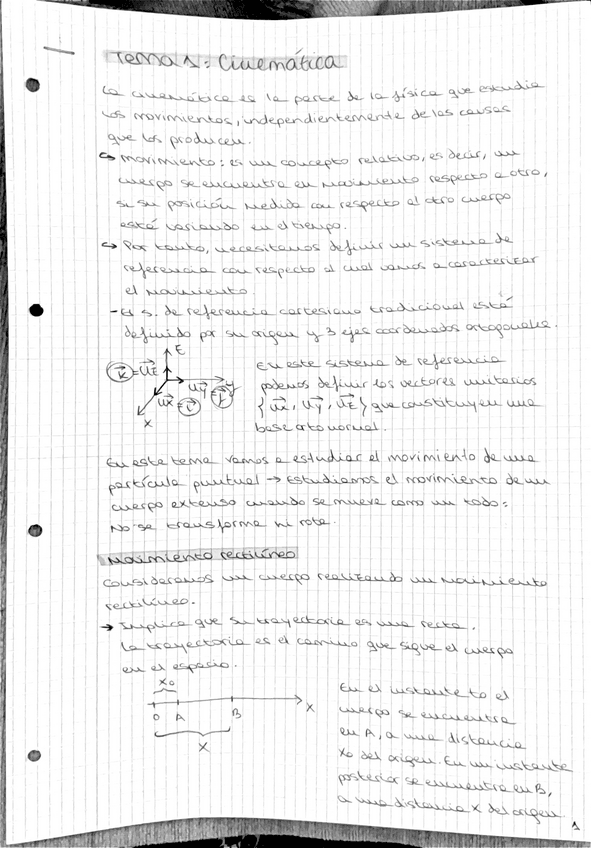 Tema 1: Cinemática
La cinemática es la parte de la física que estudia
los movimientos, independientemente de las causas
que los producen.
↪ Movimiento: es un concepto relativo, es decir, un
cuerpo se encuentra en movimiento respecto a otro,
si su posición medida con respecto al otro cuerpo
está variando en el tiempo.
↪ Por tanto, necesitamos definir un sistema de
referencia con respecto al cual vamos a caracterizar
el movimiento.
- El s. de referencia cartesiano tradicional está
definido por su origen y 3 ejes coordenados ortogonales.
z
k = uz
uy = j y
ux = i
x
En este sistema de referencia
podemos definir los vectores unitarios
{ux, uy, uz} que constituyen una
base ortonormal.
En este tema vamos a estudiar el movimiento de una
partícula puntual → Estudiamos el movimiento de un
cuerpo extenso cuando se mueve como un todo:
No se transforma ni rota.
Movimiento rectilíneo
Consideramos un cuerpo realizando un movimiento
rectilíneo.
→ Implica que su trayectoria es una recta.
La trayectoria es el camino que sigue el cuerpo
en el espacio.
x0
O A B x
x
En el instante t0 el
cuerpo se encuentra
en A, a una distancia
x0 del origen. En un instante
posterior se encuentra en B,
a una distancia x del origen.
1